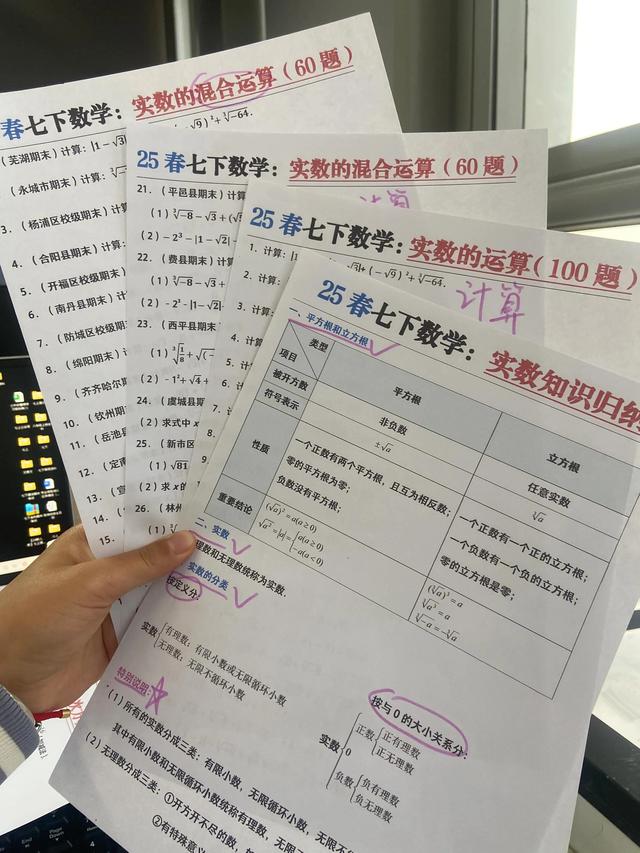 春七下数学：实数的混合运算（60题）
（芜湖期末）计算：|1－√3
√9）²＋∛－64.
（永城市期末）
3.（杨浦区校级期末）
4.（合阳县期末）计算：
5.（开福区校级期末）
6.（南丹县期末）
7.（防城区校级期末）
8.（绵阳期末）
9.（齐齐哈尔
10.（钦州期
11.（岳池县
12.
13.
14.
15.
25 春七下数学：实数的混合运算（60题）
计算
21.（平邑县期末）计算
（1）∛－8－√3＋(√
（2）－2³－|1－√2|
22.（费县期末）计算
（1）∛－8－√3＋
（2）－2³－|1－√2|
23.（西平县期末
（2）－1²＋√4＋
24.（虞城县期
（2）求式中 x
25.（新市区
（1）√81
（2）求 x的
26.（林州
（1）
25 春七下数学：实数的运算（100题）
1. 计算：|1
√3|＋(－√9)²＋∛－64.
计算
2. 计算：
3. 计算：
4. 计
5.
6.
7.
25 春七下数学：实数知识归纳
一、平方根和立方根
类型
项目
平方根
立方根
被开方数
非负数
任意实数
符号表示
±√a
∛a
性质
一个正数有两个平方根，且互为相反数；
零的平方根为零；
负数没有平方根；
一个正数有一个正的立方根；
一个负数有一个负的立方根；
零的立方根是零；
重要结论
(√a)²＝a(a≥0)
√a²＝|a|＝{a(a≥0)
－a(a<0)
(∛a)³＝a
∛a³＝a
∛－a＝－∛a
二、实数
理数和无理数统称为实数.
实数的分类
按定义分：
实数{有理数：有限小数或无限循环小数
无理数：无限不循环小数
按与 0 的大小关系分：
实数{正数{正有理数
正无理数
0
负数{负有理数
负无理数
特别说明：
（1）所有的实数分成三类：有限小数，无限循环小数，无限不
其中有限小数和无限循环小数统称有理数，无限
（2）无理数分成三类：①开方开不尽的数，如
②有特殊意